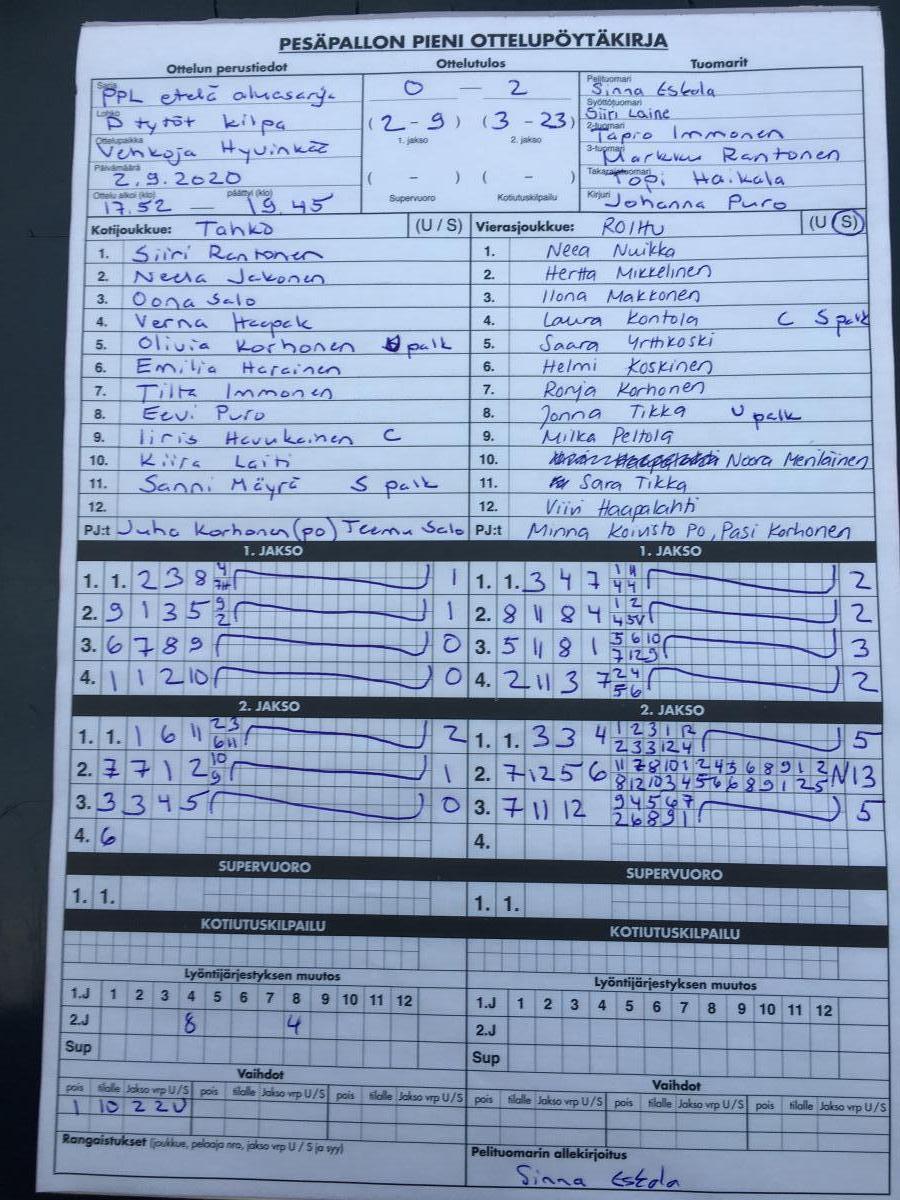 PESÄPALLON PIENI OTTELUPÖYTÄKIRJA
Ottelun perustiedot Ottelutulos Tuomarit
Sarja PPL etelä aluesarja
Lohko D tytöt kilpa
Ottelupaikka Vehkoja Hyvinkää
Päivämäärä 2.9.2020
Ottelu alkoi (klo) 17.52 — päättyi (klo) 19.45
0 — 2
(2 - 9) (3 - 23)
1. jakso 2. jakso
( - ) ( - )
Supervuoro Kotiutuskilpailu
Pelituomari Sinna Eskola
Syöttötuomari Siiri Laine
2-tuomari Tapio Immonen
3-tuomari Markku Rantonen
Takarajatuomari Topi Haikala
Kirjuri Johanna Puro
Kotijoukkue: Tahko (U / S)
1. Siiri Rantonen
2. Neela Jakonen
3. Oona Salo
4. Verna Haapak
5. Olivia Korhonen U palk
6. Emilia Harainen
7. Tilta Immonen
8. Eevi Puro
9. Iiris Havukainen C
10. Kiira Laiti
11. Sanni Mäyrä S palk
12.
PJ:t Juha Korhonen (po) Teemu Salo
Vierasjoukkue: ROIHU (U S)
1. Neea Nuikka
2. Hertta Mikkelinen
3. Ilona Makkonen
4. Laura Kontola C S palk
5. Saara Yrttikoski
6. Helmi Koskinen
7. Ronja Korhonen
8. Jonna Tikka U palk
9. Milka Peltola
10. Noora Meriläinen
11. Sara Tikka
12. Viivi Haapalahti
PJ:t Minna Koivisto PO, Pasi Korhonen
1. JAKSO
1. 1. 2 3 8 4 7H 1
2. 9 1 3 5 9 2 1
3. 6 7 8 9 0
4. 1 1 2 10 0
2. JAKSO
1. 1. 1 6 11 2 3 6 11 2
2. 7 7 1 2 10 9 1
3. 3 3 4 5 0
4. 6
SUPERVUORO
1. 1.
KOTIUTUSKILPAILU
1. JAKSO
1. 1. 3 4 7 1 11 4 4 2
2. 8 11 8 4 1 2 4 5V 2
3. 5 11 8 1 5 6 10 7 12 9 3
4. 2 11 3 7 2 4 5 6 2
2. JAKSO
1. 1. 3 3 4 1 2 3 1 12 2 3 3 12 4 5
2. 7 12 5 6 11 7 8 10 1 2 4 3 6 8 9 1 2 8 12 10 3 4 5 6 6 8 9 1 2 5 N13
3. 7 11 12 9 4 5 6 7 2 6 8 9 1 5
4.
SUPERVUORO
1. 1.
KOTIUTUSKILPAILU
Lyöntijärjestyksen muutos
1.J 1 2 3 4 5 6 7 8 9 10 11 12
2.J 8 4
Sup
Vaihdot
pois tilalle Jakso vrp U / S pois tilalle Jakso vrp U / S pois tilalle Jakso vrp U / S
1 10 2 2U
Rangaistukset (joukkue, pelaaja nro, jakso vrp U / S ja syy)
Lyöntijärjestyksen muutos
1.J 1 2 3 4 5 6 7 8 9 10 11 12
2.J
Sup
Vaihdot
pois tilalle Jakso vrp U / S pois tilalle Jakso vrp U / S pois tilalle Jakso vrp U / S
Pelituomarin allekirjoitus
Sinna Eskola